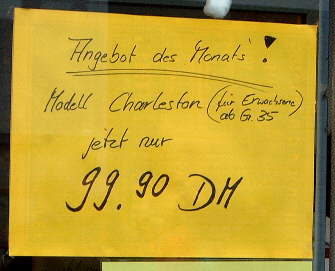 Angebot des Monats !
Modell Charleston (für Erwachsene
ab Gr. 35)
jetzt nur
99.90 DM